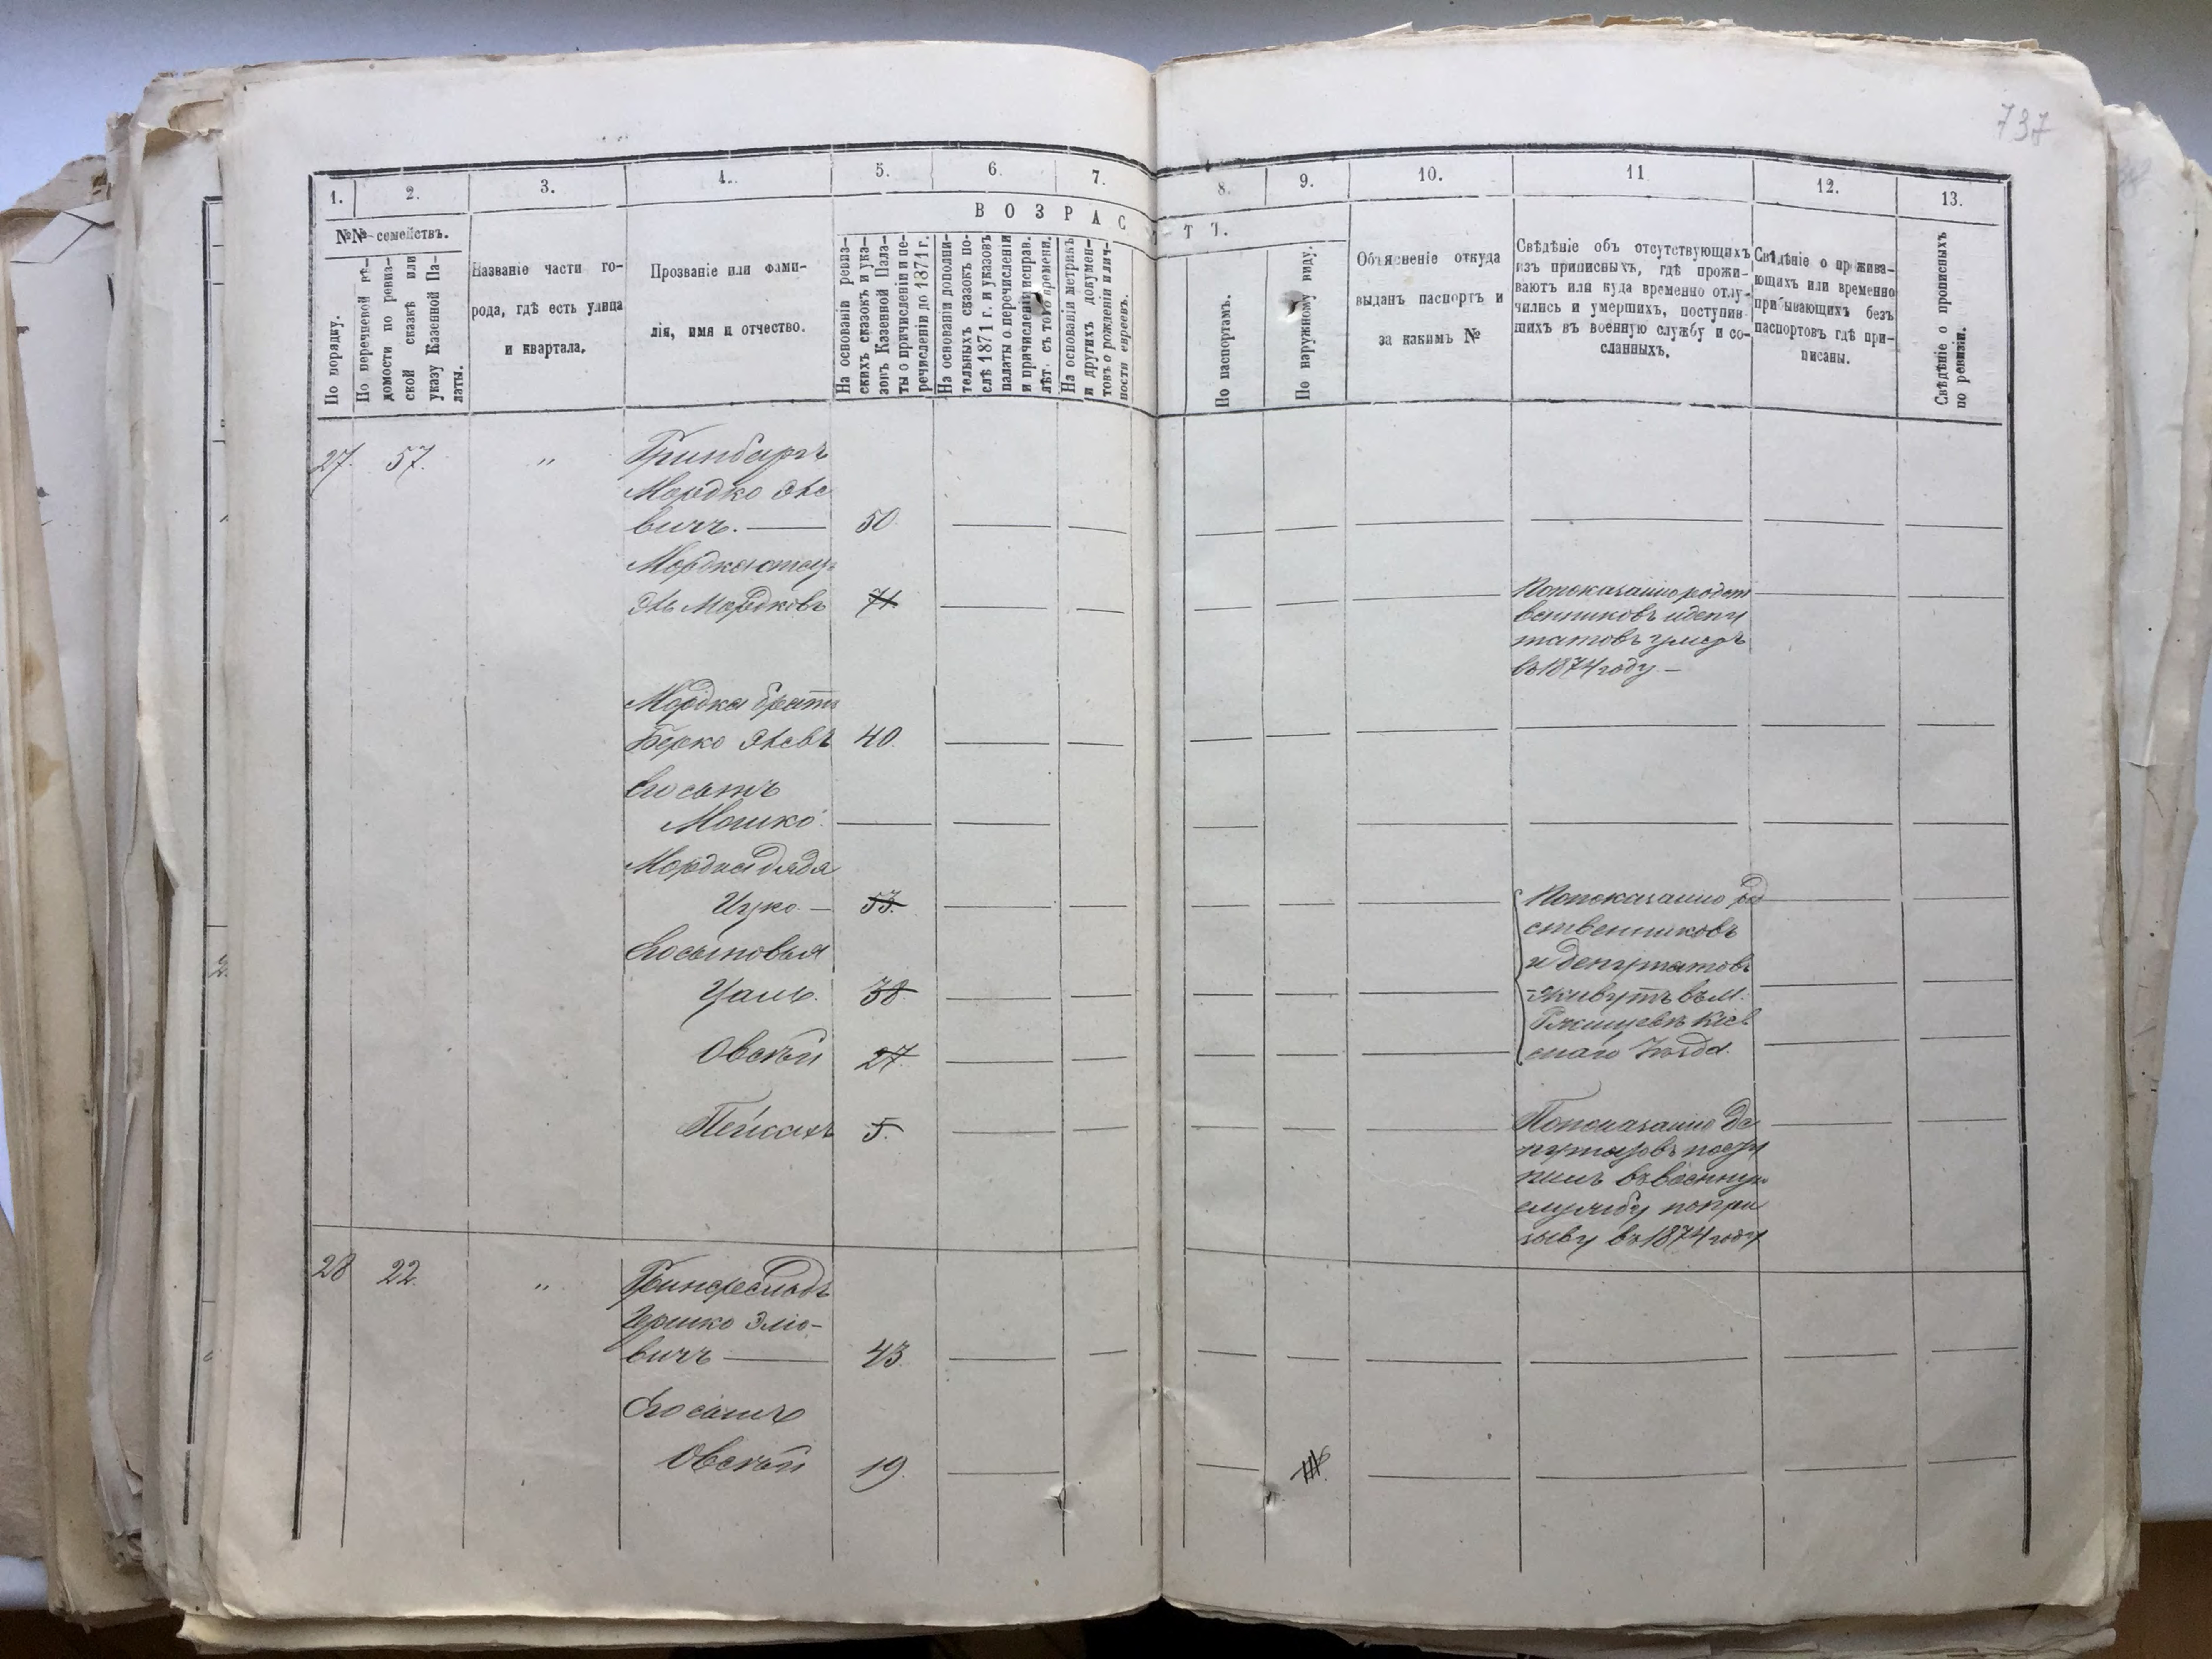 737
1.
2.
3.
4.
5.
6.
7.
8.
9.
10.
11
12.
13.
№№ семействъ.
В О З Р А С Т Ъ.
По порядку.
По перечневой вѣ-
домости по ревиз-
ской сказкѣ или
указу Казенной Па-
латы.
Названіе части го-
рода, гдѣ есть улица
и квартала.
Прозваніе или фами-
лія, имя и отчество.
На основаніи ревиз-
скихъ сказокъ и ука-
зовъ Казенной Пала-
ты о причисленіи и пе-
речисленіи до 1871 г.
На основаніи дополни-
тельныхъ сказокъ по-
слѣ 1871 г. и указовъ
палаты о перечисленіи
и причисленіи исправ.
лѣт. съ того времени.
На основаніи метрикъ
и другихъ докумен-
товъ о рожденіи и лич-
ности евреевъ.
По паспортамъ.
По наружному виду.
Объясненіе откуда
выданъ паспортъ и
за какимъ №
Свѣдѣніе объ отсутствующихъ
изъ приписныхъ, гдѣ прожи-
ваютъ или куда временно отлу-
чились и умершихъ, поступив
шихъ въ военную службу и со-
сланныхъ.
Свѣдѣніе о прожива-
ющихъ или временно
прибывающихъ безъ
паспортовъ гдѣ при-
писаны.
Свѣдѣніе о прописныхъ
по ревизіи.
27. 57. "
Гринбаргъ
Мордко
вичъ. — 50.
Мордка отец
Мордковъ 71
По показанію родст
венниковъ и депу
татовъ умеръ
въ 1874 году —
Мордка братъ
Берко 40.
Его сынъ
Мошко.
Мордка дядя
Ицко — 53.
Его сыновья
Цаль. 38.
Овсѣй 27.
По показанію род
ственниковъ
и депутатовъ
живутъ въ м.
Ржищевѣ Кіев
скаго Уѣзда.
Пейсахъ 5.
По показанію Де
путатовъ посту
пилъ въ военную
службу по при
зыву въ 1874 году
28 22. "
Гершко Эліо-
вичъ — 43
Его сынъ
Овсѣй 19.